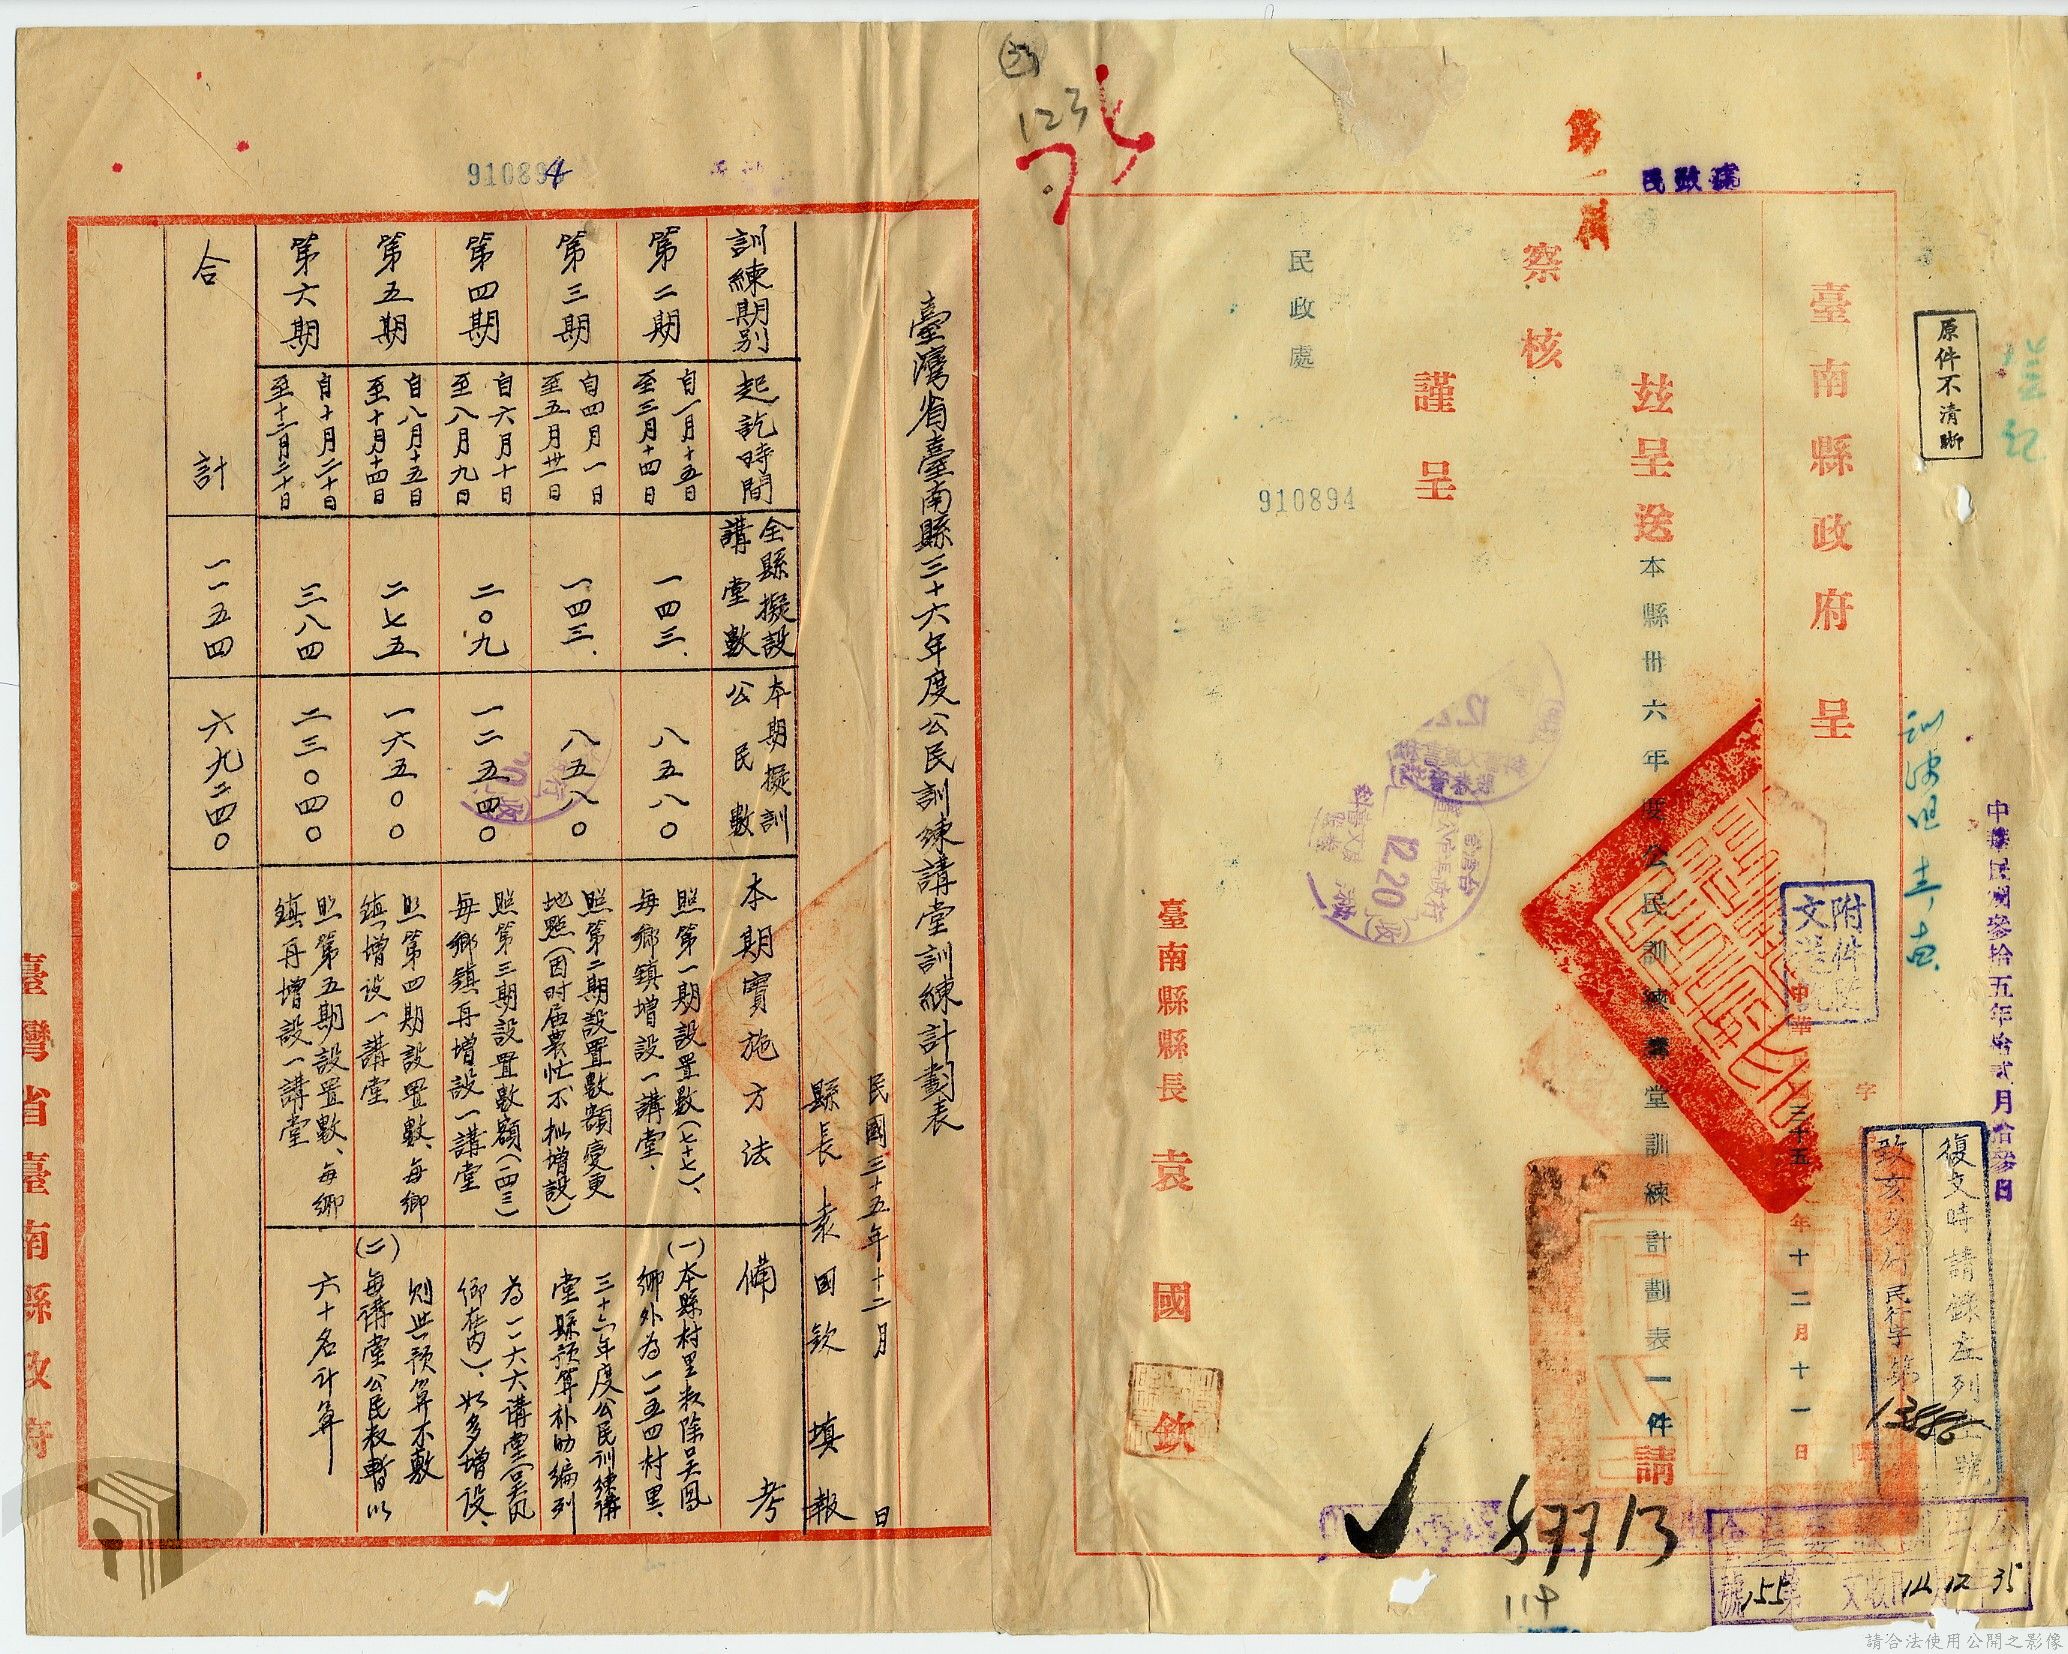 原件不清晰
中華民國參拾五年拾貳月拾參日
復文時請錄左列
致亥
民行字第
附件隨文
臺南縣政府呈
字
中華民國三十五年十二月十一日
茲呈送本縣卅六年度公民訓練講堂訓練計劃表一件請
察核
謹呈
民政處
臺南縣縣長袁國欽
民政處
第
910894
12.20
123
87713
114
號155第
文收
14 12 35
910894
臺灣省臺南縣三十六年度公民訓練講堂訓練計劃表
民國三十五年十二月 日
縣長袁國欽填報
訓練期別
起訖時間
全縣擬設
講堂數
本期擬訓
公民數
本期實施方法
備考
第二期
自一月十五日
至三月十四日
一四三
八五八〇
照第一期設置數(七七)、
每鄉鎮增設一講堂、
第三期
自四月一日
至五月卅一日
一四三
八五八〇
照第二期設置數額變更
地點(因時屆農忙不擬增設)
第四期
自六月十日
至八月九日
二〇九
一二五四〇
照第三期設置數額(一四三)
每鄉鎮再增設一講堂
第五期
自八月十五日
至十月十四日
二七五
一六五〇〇
照第四期設置數、每鄉
鎮增设一講堂
第六期
自十月二十日
至十二月二十日
三八四
二三〇四〇
照第五期設置數、每鄉
鎮再增設一講堂
合計
一一五四
六九二四〇
(一)本縣村里数除吳鳳
鄉外為一一五四村里、
三十六年度公民訓練講
堂縣預算补助編列
為一一六六講堂(吳凤
鄉在內)、如多增设、
则與預算不敷
(二)每講堂公民数暫以
六十名计算
臺灣省臺南縣政府
請合法使用公開之影像